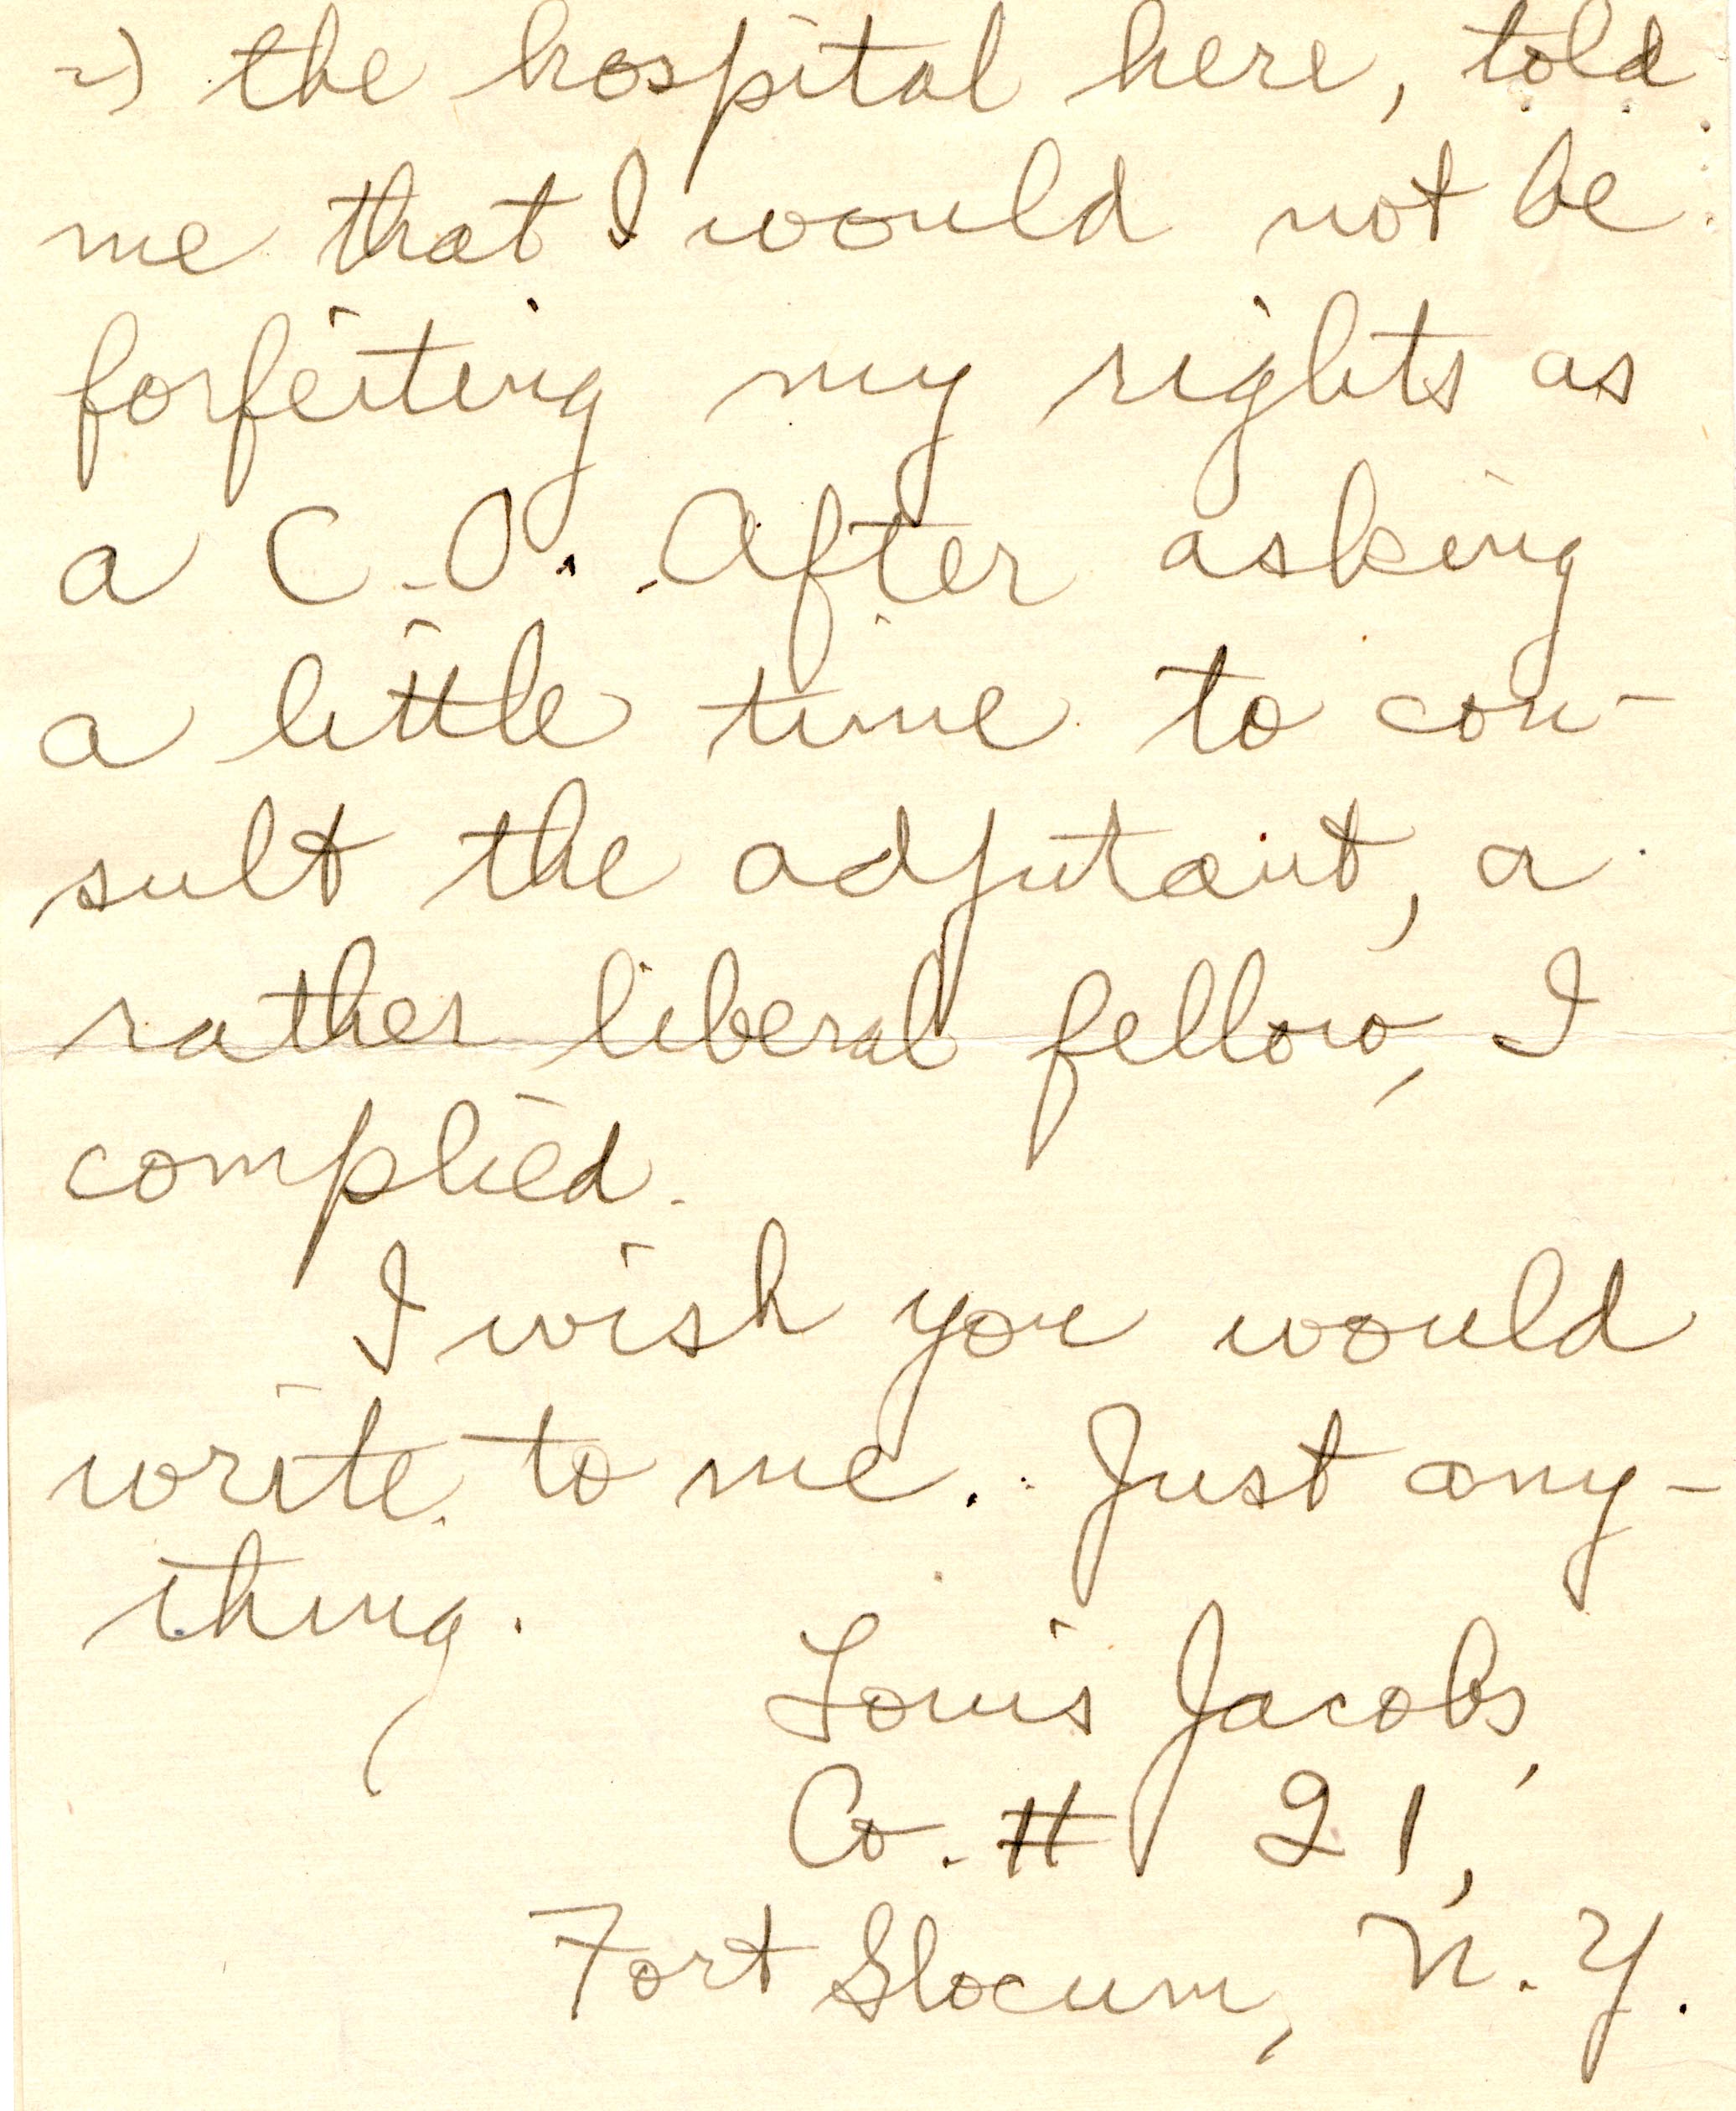 2) the hospital here, told
me that I would not be
forfeiting my rights as
a C.O. After asking
a little time to con-
sult the adjutant, a
rather liberal fellow, I
complied.
I wish you would
write to me. Just any-
thing.
Louis Jacobs,
Co. # 21,
Fort Slocum, N.Y.